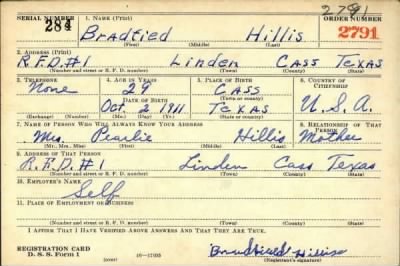 2791
SERIAL NUMBER 1. NAME (Print) ORDER NUMBER
284 Bradfied Hillis 2791
(First) (Middle) (Last)
2. ADDRESS (Print)
R.F.D.#1 Linden Cass Texas
(Number and street or R. F. D. number) (Town) (County) (State)
3. TELEPHONE 4. AGE IN YEARS 5. PLACE OF BIRTH 6. COUNTRY OF CITIZENSHIP
None 29 Cass
DATE OF BIRTH (Town or county)
Oct 2 1911 Texas U.S.A.
(Exchange) (Number) (Mo.) (Day) (Yr.) (State or country)
7. NAME OF PERSON WHO WILL ALWAYS KNOW YOUR ADDRESS 8. RELATIONSHIP OF THAT PERSON
Mrs. Pearlie Hillis Mother
(Mr., Mrs., Miss) (First) (Middle) (Last)
9. ADDRESS OF THAT PERSON
R.F.D.#1 Linden Cass Texas
(Number and street or R. F. D. number) (Town) (County) (State)
10. EMPLOYER'S NAME
Self
11. PLACE OF EMPLOYMENT OR BUSINESS
(Number and street or R. F. D. number) (Town) (County) (State)
I AFFIRM THAT I HAVE VERIFIED ABOVE ANSWERS AND THAT THEY ARE TRUE.
REGISTRATION CARD
D. S. S. Form 1 (over) 16—17105 Hillis
(Registrant's signature)